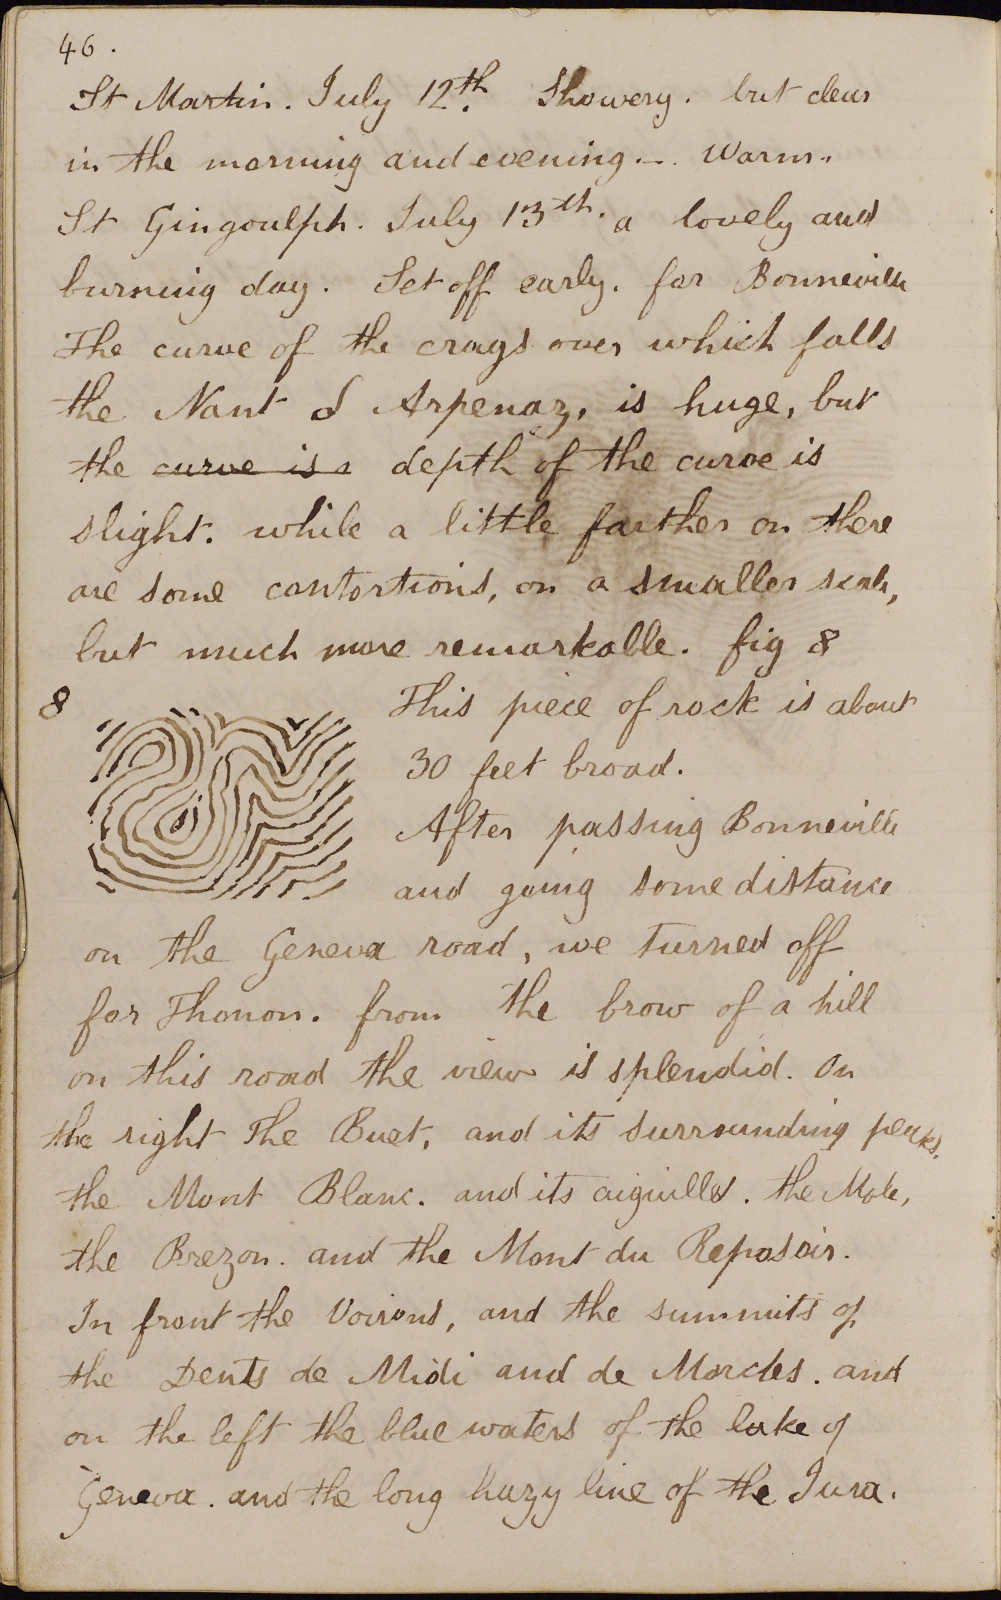 46.
St Martin. July 12th. Showery. but clear
in the morning and evening. –. Warm.
St Gingoulph. July 13th. a lovely and
burning day. Set off early. for Bonneville
The curve of the crags over which falls
the Nant d Arpenaz, is huge, but
the curve is a depth of the curve is
slight. while a little farther on there
are some contortions, on a smaller scale,
but much more remarkable. fig 8
8
This piece of rock is about
30 feet broad.
After passing Bonneville
and going some distance
on the Geneva road, we turned off
for Thonon. from the brow of a hill
on this road the view is splendid. On
the right The Buet, and its surrounding peaks.
the Mont Blanc. and its aiguilles. the Mole,
the Brezon. and the Mont du Reposoir.
In front the Voirons, and the summits of
the Dents de Midi and de Morcles. and
on the left the blue waters of the lake of
Geneva. and the long hazy line of the Jura.